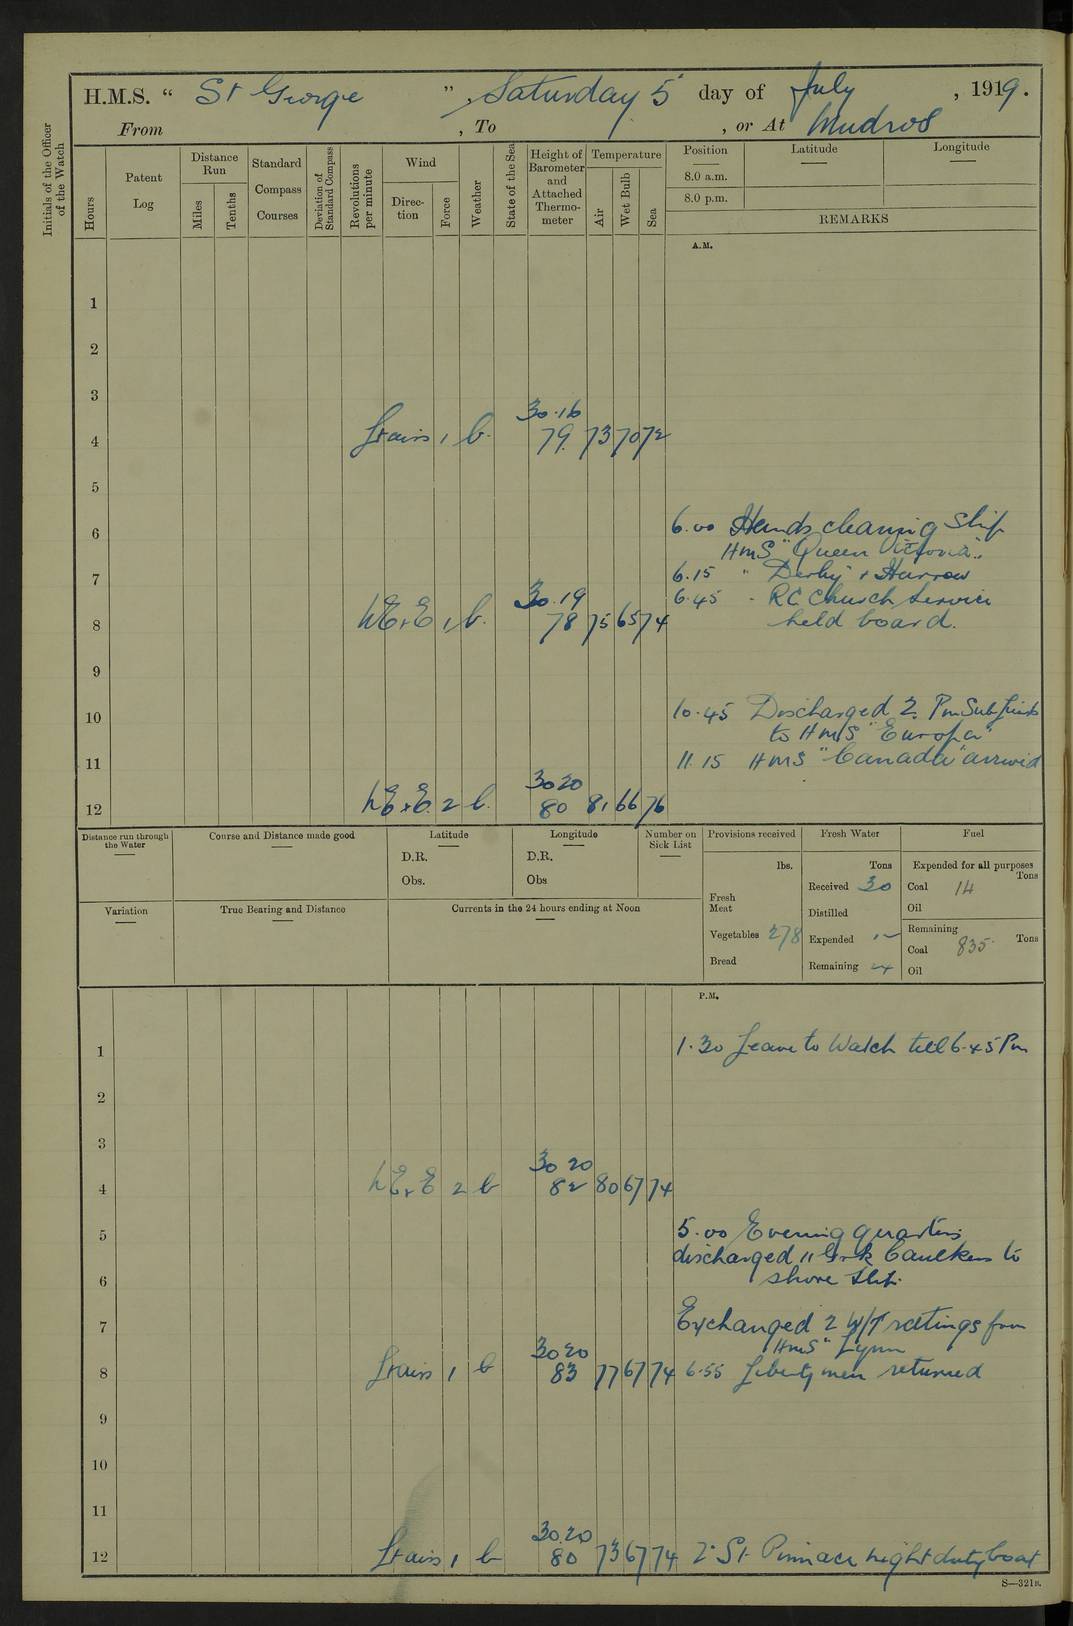 H.M.S. " St George ", Saturday 5 day of July, 1919.
From , To , or At Mudros
Initials of the Officer of the Watch
Hours
Patent Log
Distance Run
Miles
Tenths
Standard Compass Courses
Deviation of Standard Compass
Revolutions per minute
Wind
Direction
Force
Weather
State of the Sea
Height of Barometer and Attached Thermometer
Temperature
Air
Wet Bulb
Sea
Position
Latitude
Longitude
8.0 a.m.
8.0 p.m.
REMARKS
A.M.
1
2
3
30.16
4 1 b. 79. 73 70 72
5
6.00 Hands cleaning Ship
6
HMS "Queen Victoria".
6.15 " Derby & Harrow
7
30.19 6.45 - RC Church Service
8 1 b. 78 75 65 74 held board.
9
10.45 Discharged 2
10
to HMS "Europa"
11.15 HMS "Canada" arrived
11
30 20
12 2 b. 80 81 66 76
Distance run through the Water
Course and Distance made good
Latitude
D.R.
Obs.
Longitude
D.R.
Obs
Number on Sick List
Provisions received
lbs.
Fresh Meat
Vegetables 278
Bread
Fresh Water
Tons
Received 30
Distilled
Expended
Remaining
Fuel
Expended for all purposes
Tons
Coal 14
Oil
Remaining
Coal 835 Tons
Oil
Variation
True Bearing and Distance
Currents in the 24 hours ending at Noon
P.M.
1 1.30 Leave to Watch till 6.45 Pm
2
3
30 20
4 2 b 82 80 67 74
5 5.00 Evening quarters
discharged 11 Greek Caulkers to
6 shore
7 Exchanged 2 W/T ratings from
30 20 HMS "Lynn
8 1 b 83 77 67 74 6.55 Liberty men returned
9
10
11
30.20
12 1 b 80 73 67 74 2 St. Pinnace night duty boat
S—321B.